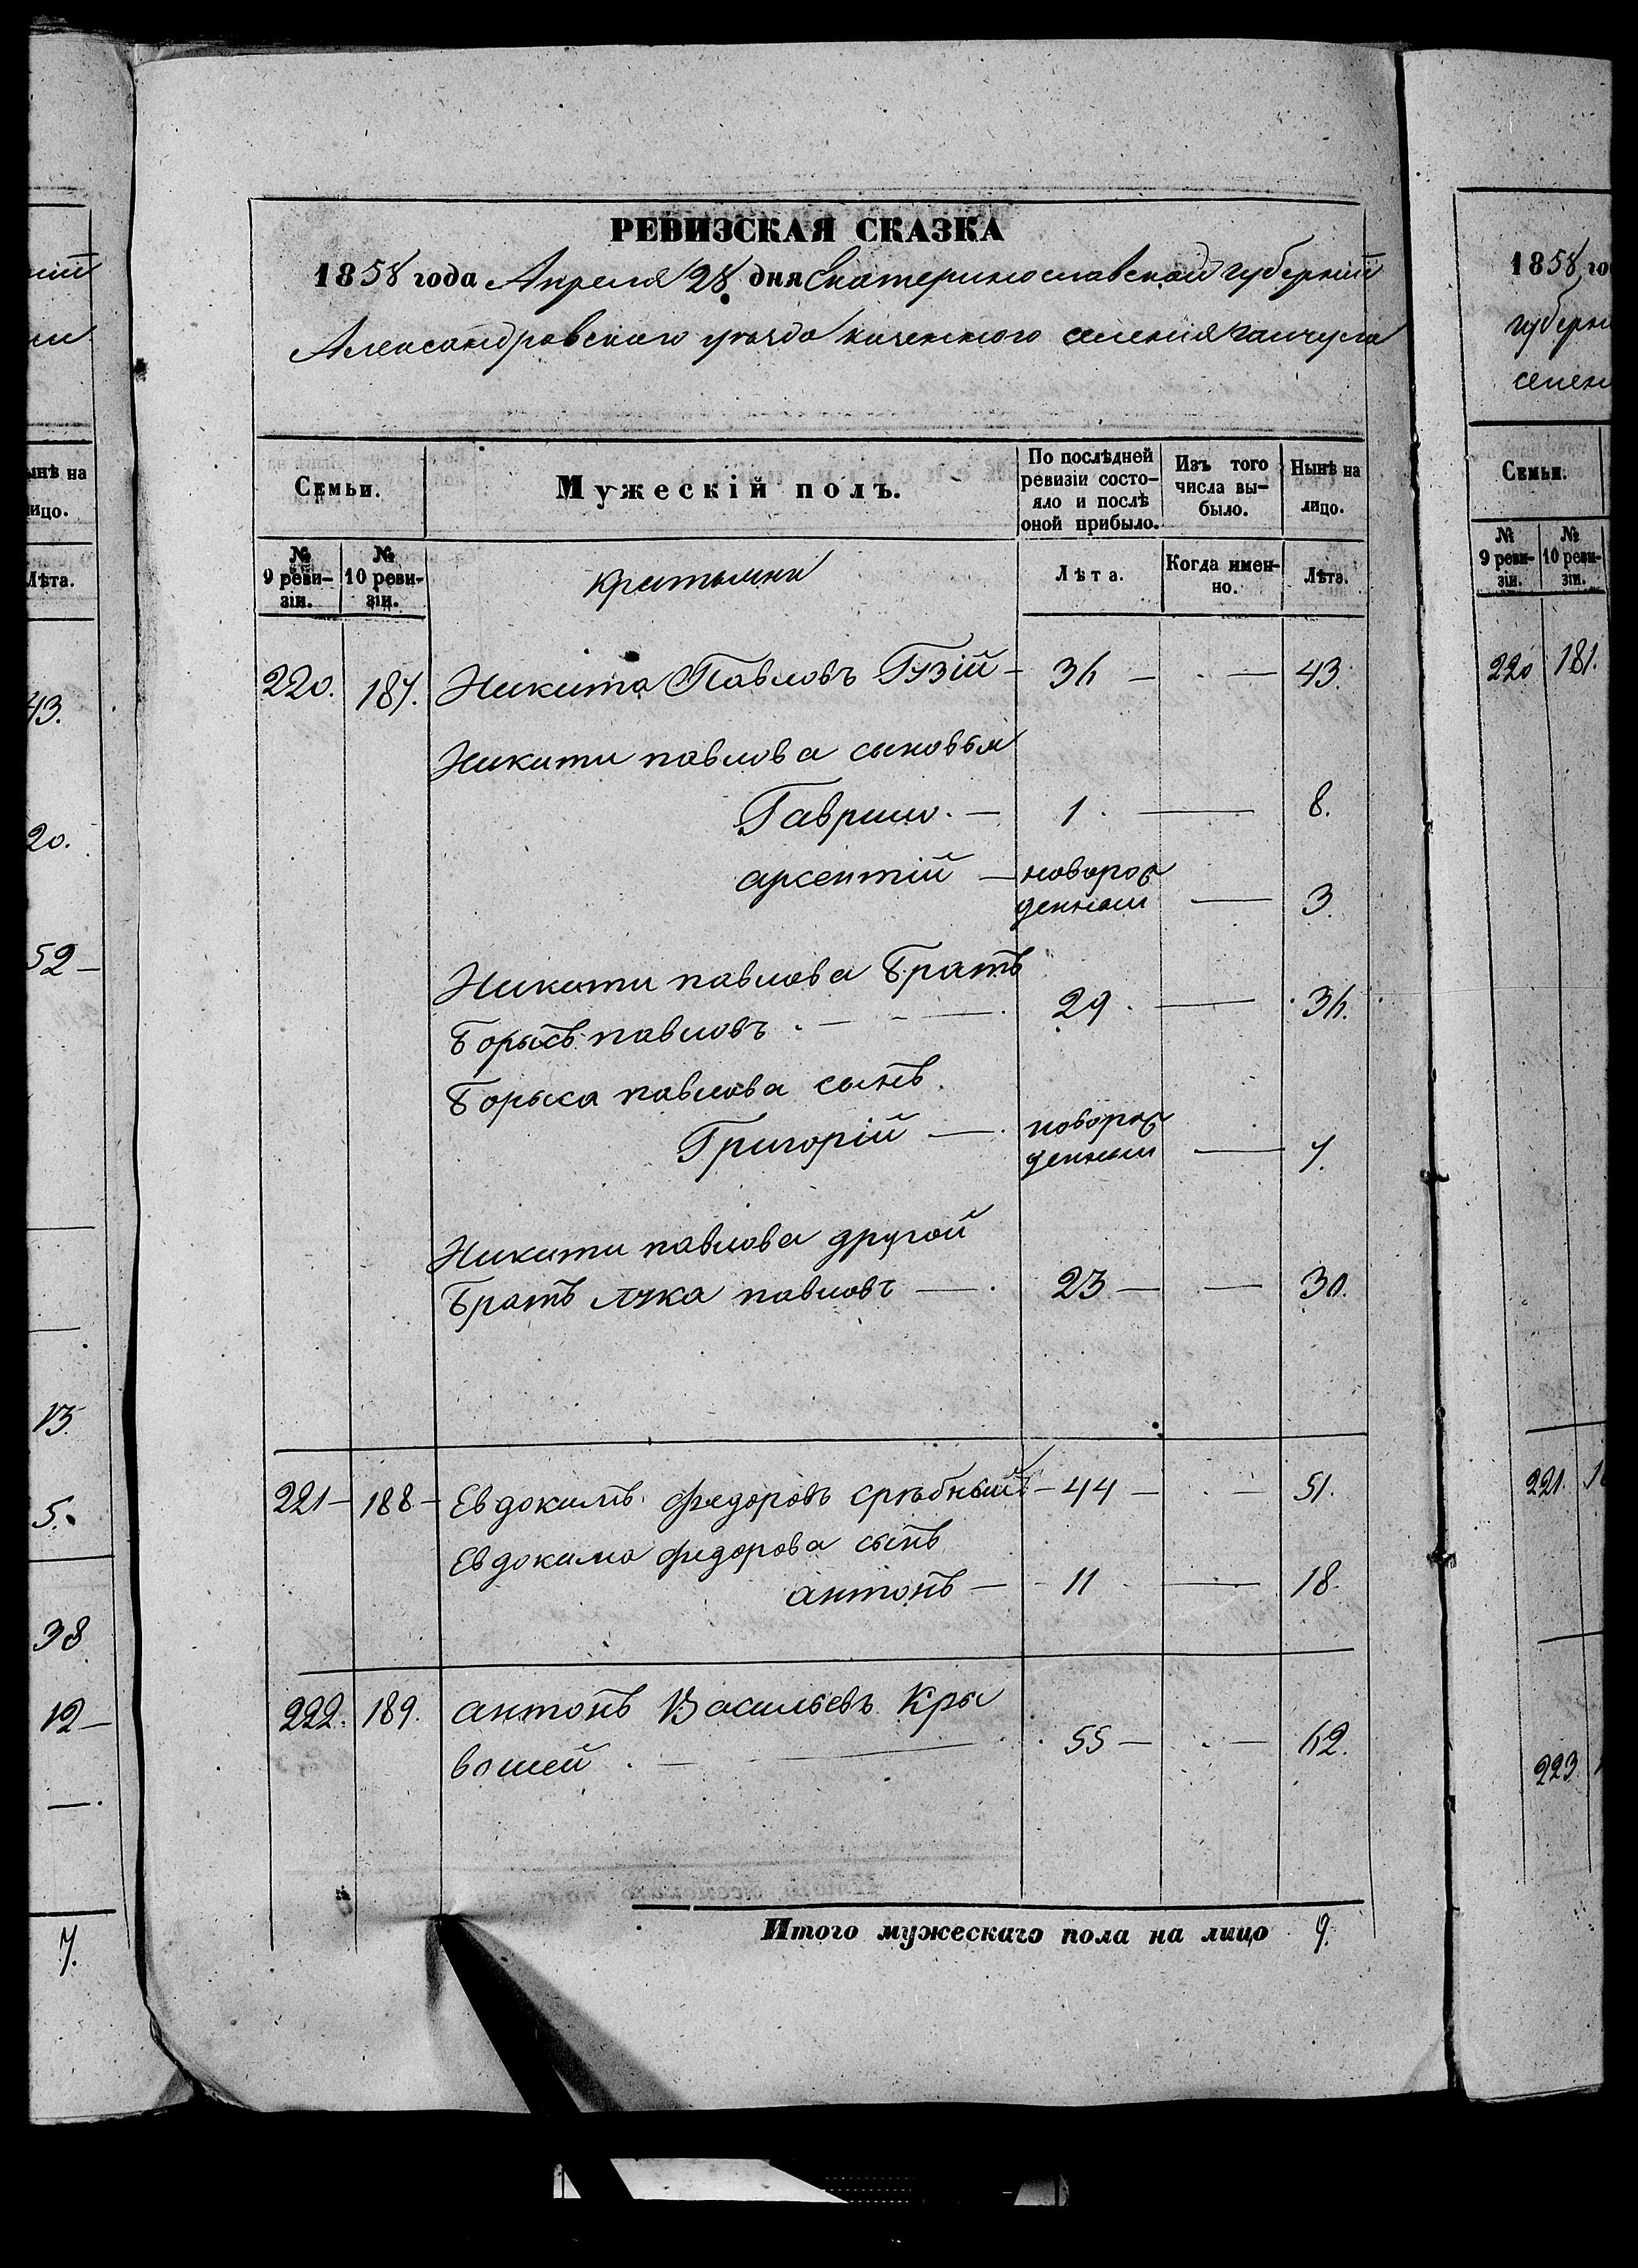 РЕВИЗСКАЯ СКАЗКА
1858 года Апреля 28 дня Екатеринославской губерніи
Александровскаго уезда казенного селения Гайчула
Семьи.
Мужескій полъ.
По послѣдней ревизіи состо-
яло и послѣ оной прибыло.
Изъ того числа вы-
было.
Нынѣ на лицо.
№ 9 реви-
зіи.
№ 10 реви-
зіи.
Лѣта.
Когда имен-
но.
Лѣта.
220. 187. Никита Павловъ Гузій - 36 — — 43.
Никити павлова сыновья
Гаврило. — 1. — 8.
арсентій — новорож
денный — 3.
Никити павлова Братъ
Борысъ павловъ. — 29. — 36.
Борыса павлова сынъ.
Григорій — новорож
денный — 7.
Никити павлова другой
Братъ лука павловъ — 23 — — 30.
221 - 188 - Евдокимъ федоровъ срѣбный - 44 — — 51.
Евдокима федорова сынъ
антонъ — 11 — 18.
222. 189. антонъ Васильевъ Кры
вошей. — 55 — — 62.
Итого мужескаго пола на лицо 9.
ынѣ на
ицо.
Лѣта.
43.
20.
52 —
13.
5.
38
12 —
7.
1858 го
губерн
селен
Семьи.
№ 9 реви-
зіи.
№ 10 реви-
зіи.
220 181.
221.
223